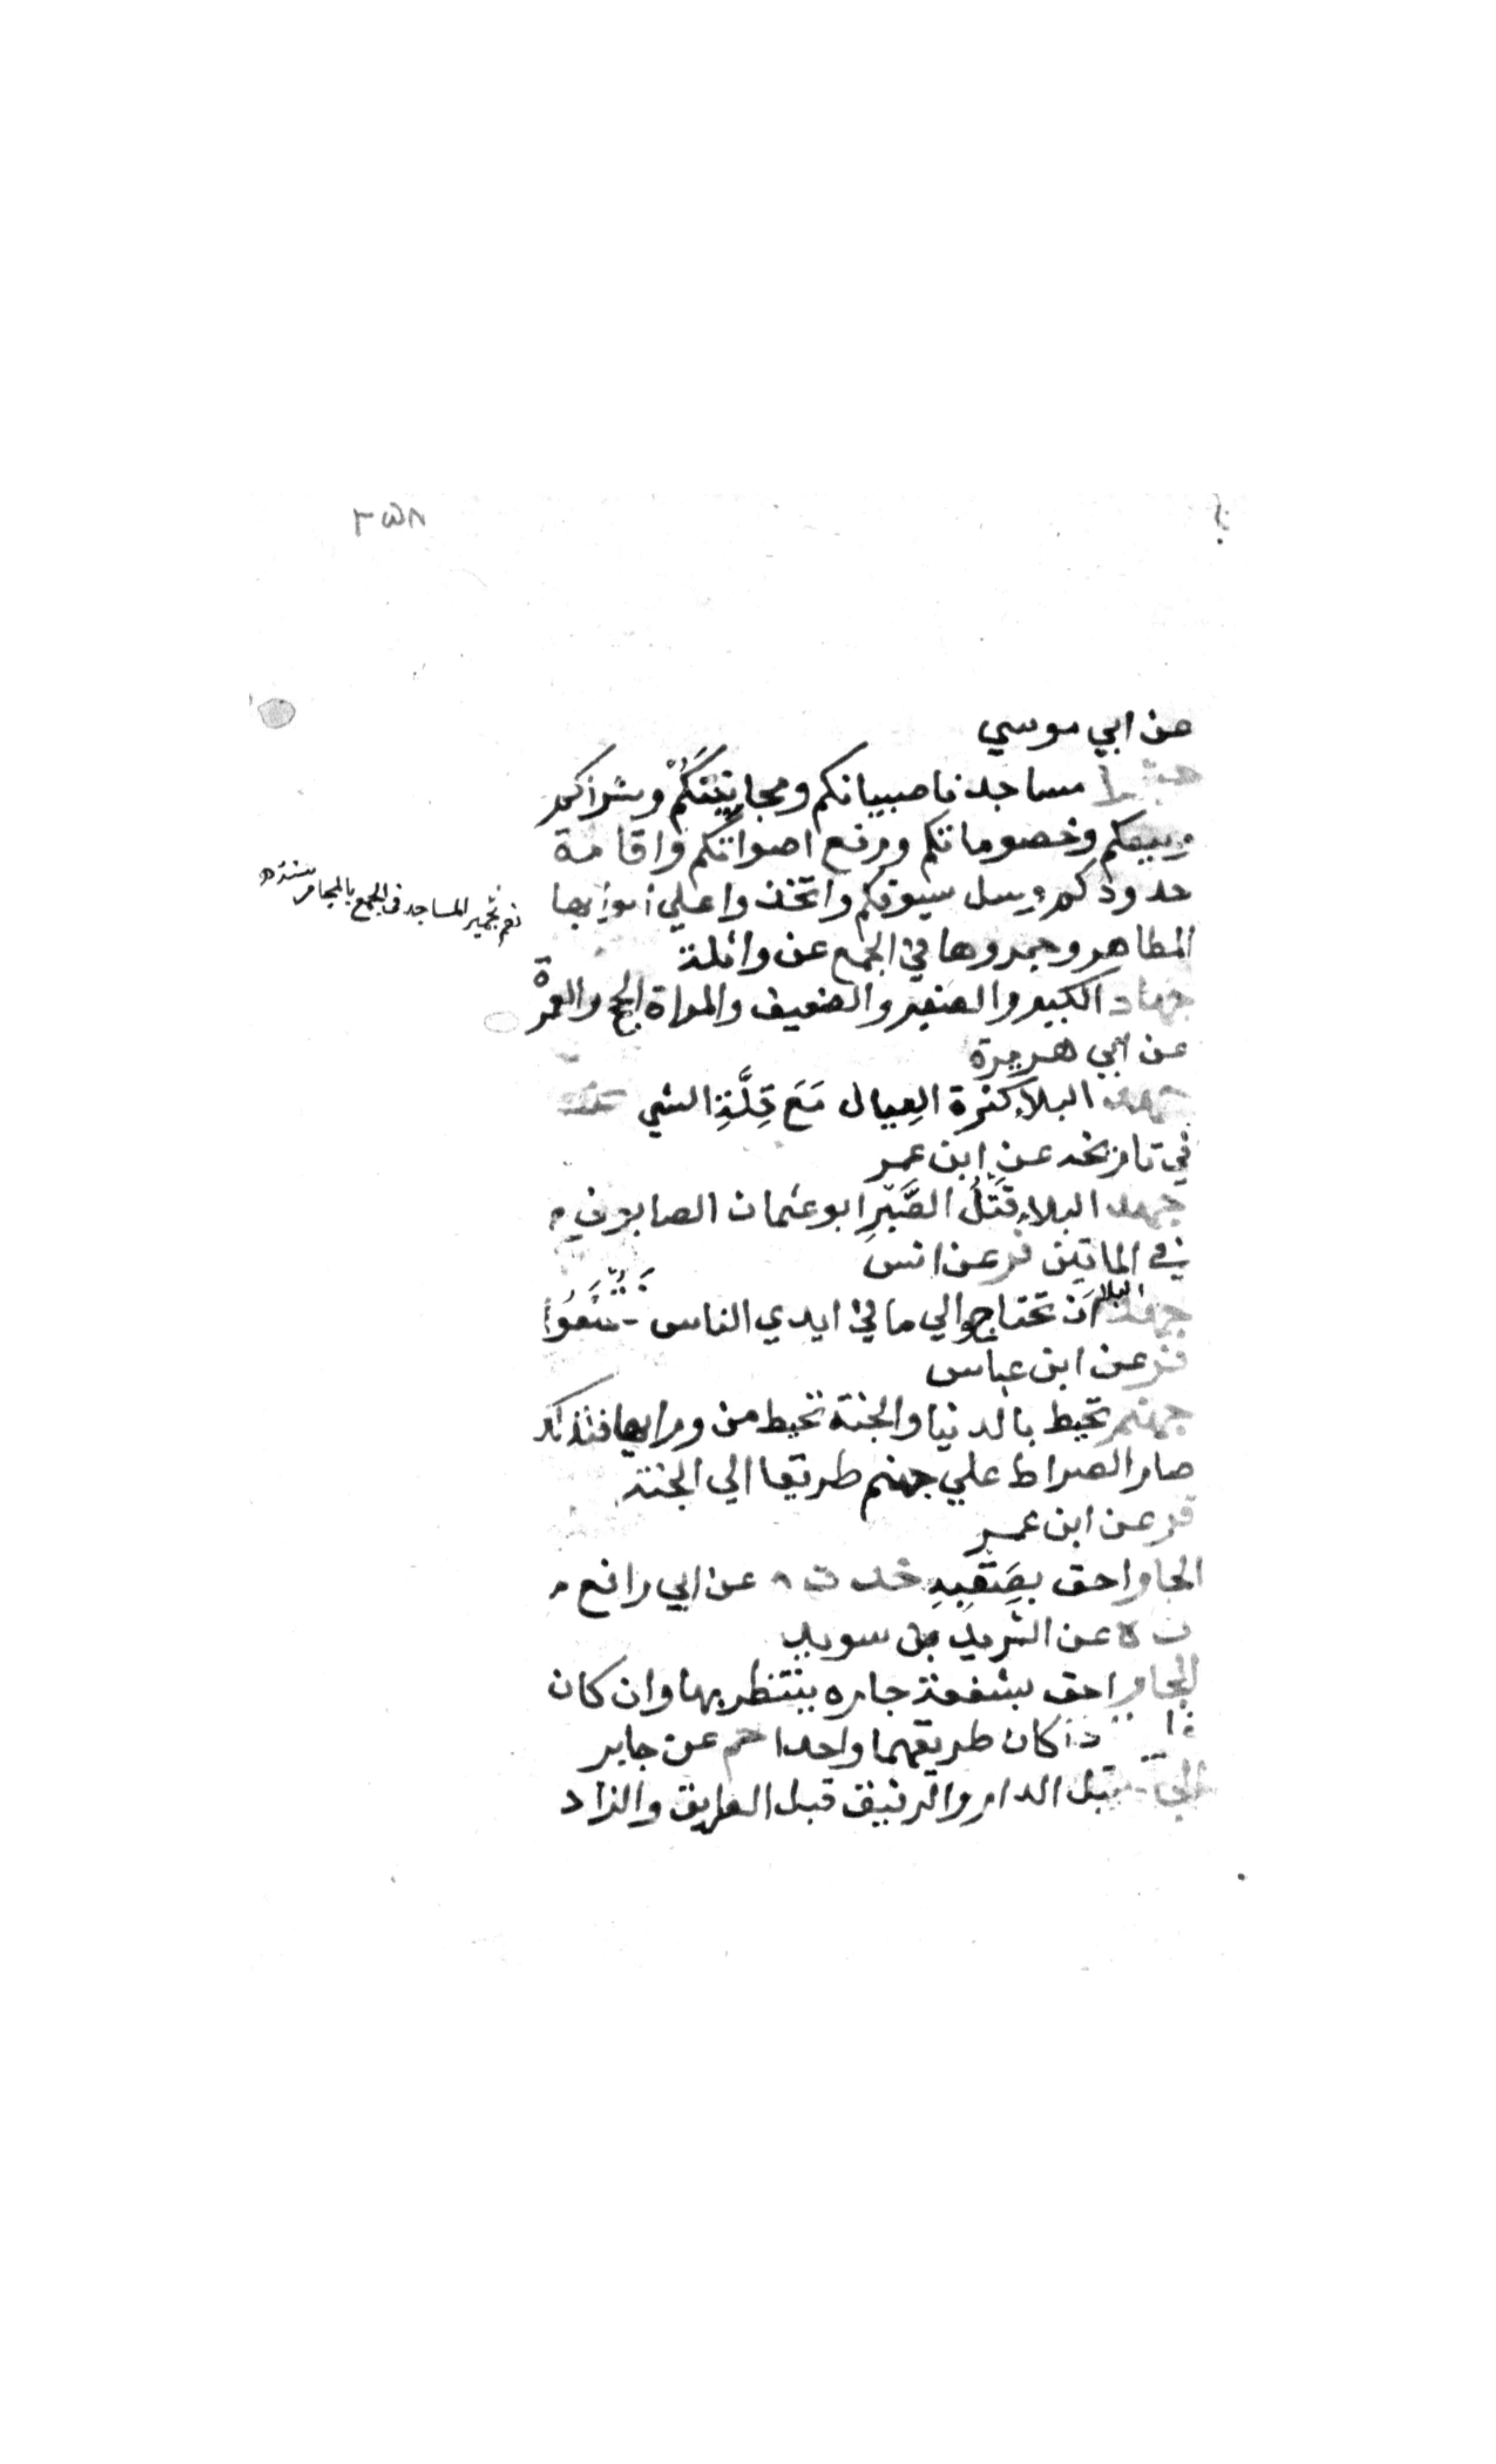 ٣٥٨
عن ابي موسي
مساجدنا صبيانكم ومجانينكم وشراكم
وبيعكم وخصوماتكم ورفع اصواتكم واقامة
حدودكم وسل سيوفكم واتخذوا علي ابوابها
المطاهر وجمروها في الجمع عن واثلة
نعم تجمير المساجد في الجمع بالمجامر سنة
جهاد الكبير والصغير والضعيف والمراة الحج والعمرة
عن ابي هريرة
جهد البلاء كثرة العيال مَعَ قِلَّةِ الشي
في تاريخه عن ابن عمر
جهد البلاء قتل الصَّبْرِ ابو عثمان الصابوني
في الماتين فر عن انس
جهد البلاء ان تحتاجوا الي ما في ايدي الناس فتمنعوا
فر عن ابن عباس
جهنم تحيط بالدنيا والجنة تحيط من ورايها فلذلك
صار الصراط علي جهنم طريقا الي الجنة
فر عن ابن عمر
الجار احق بصَقَبِهِ خ د ن ه عن ابي رافع
ن ه عن الشريد بن سويد
الجار احق بشفعة جاره ينتظر بها وان كان
اذا كان طريقهما واحدا حم عن جابر
الجار قبل الدار والرفيق قبل الطريق والزاد